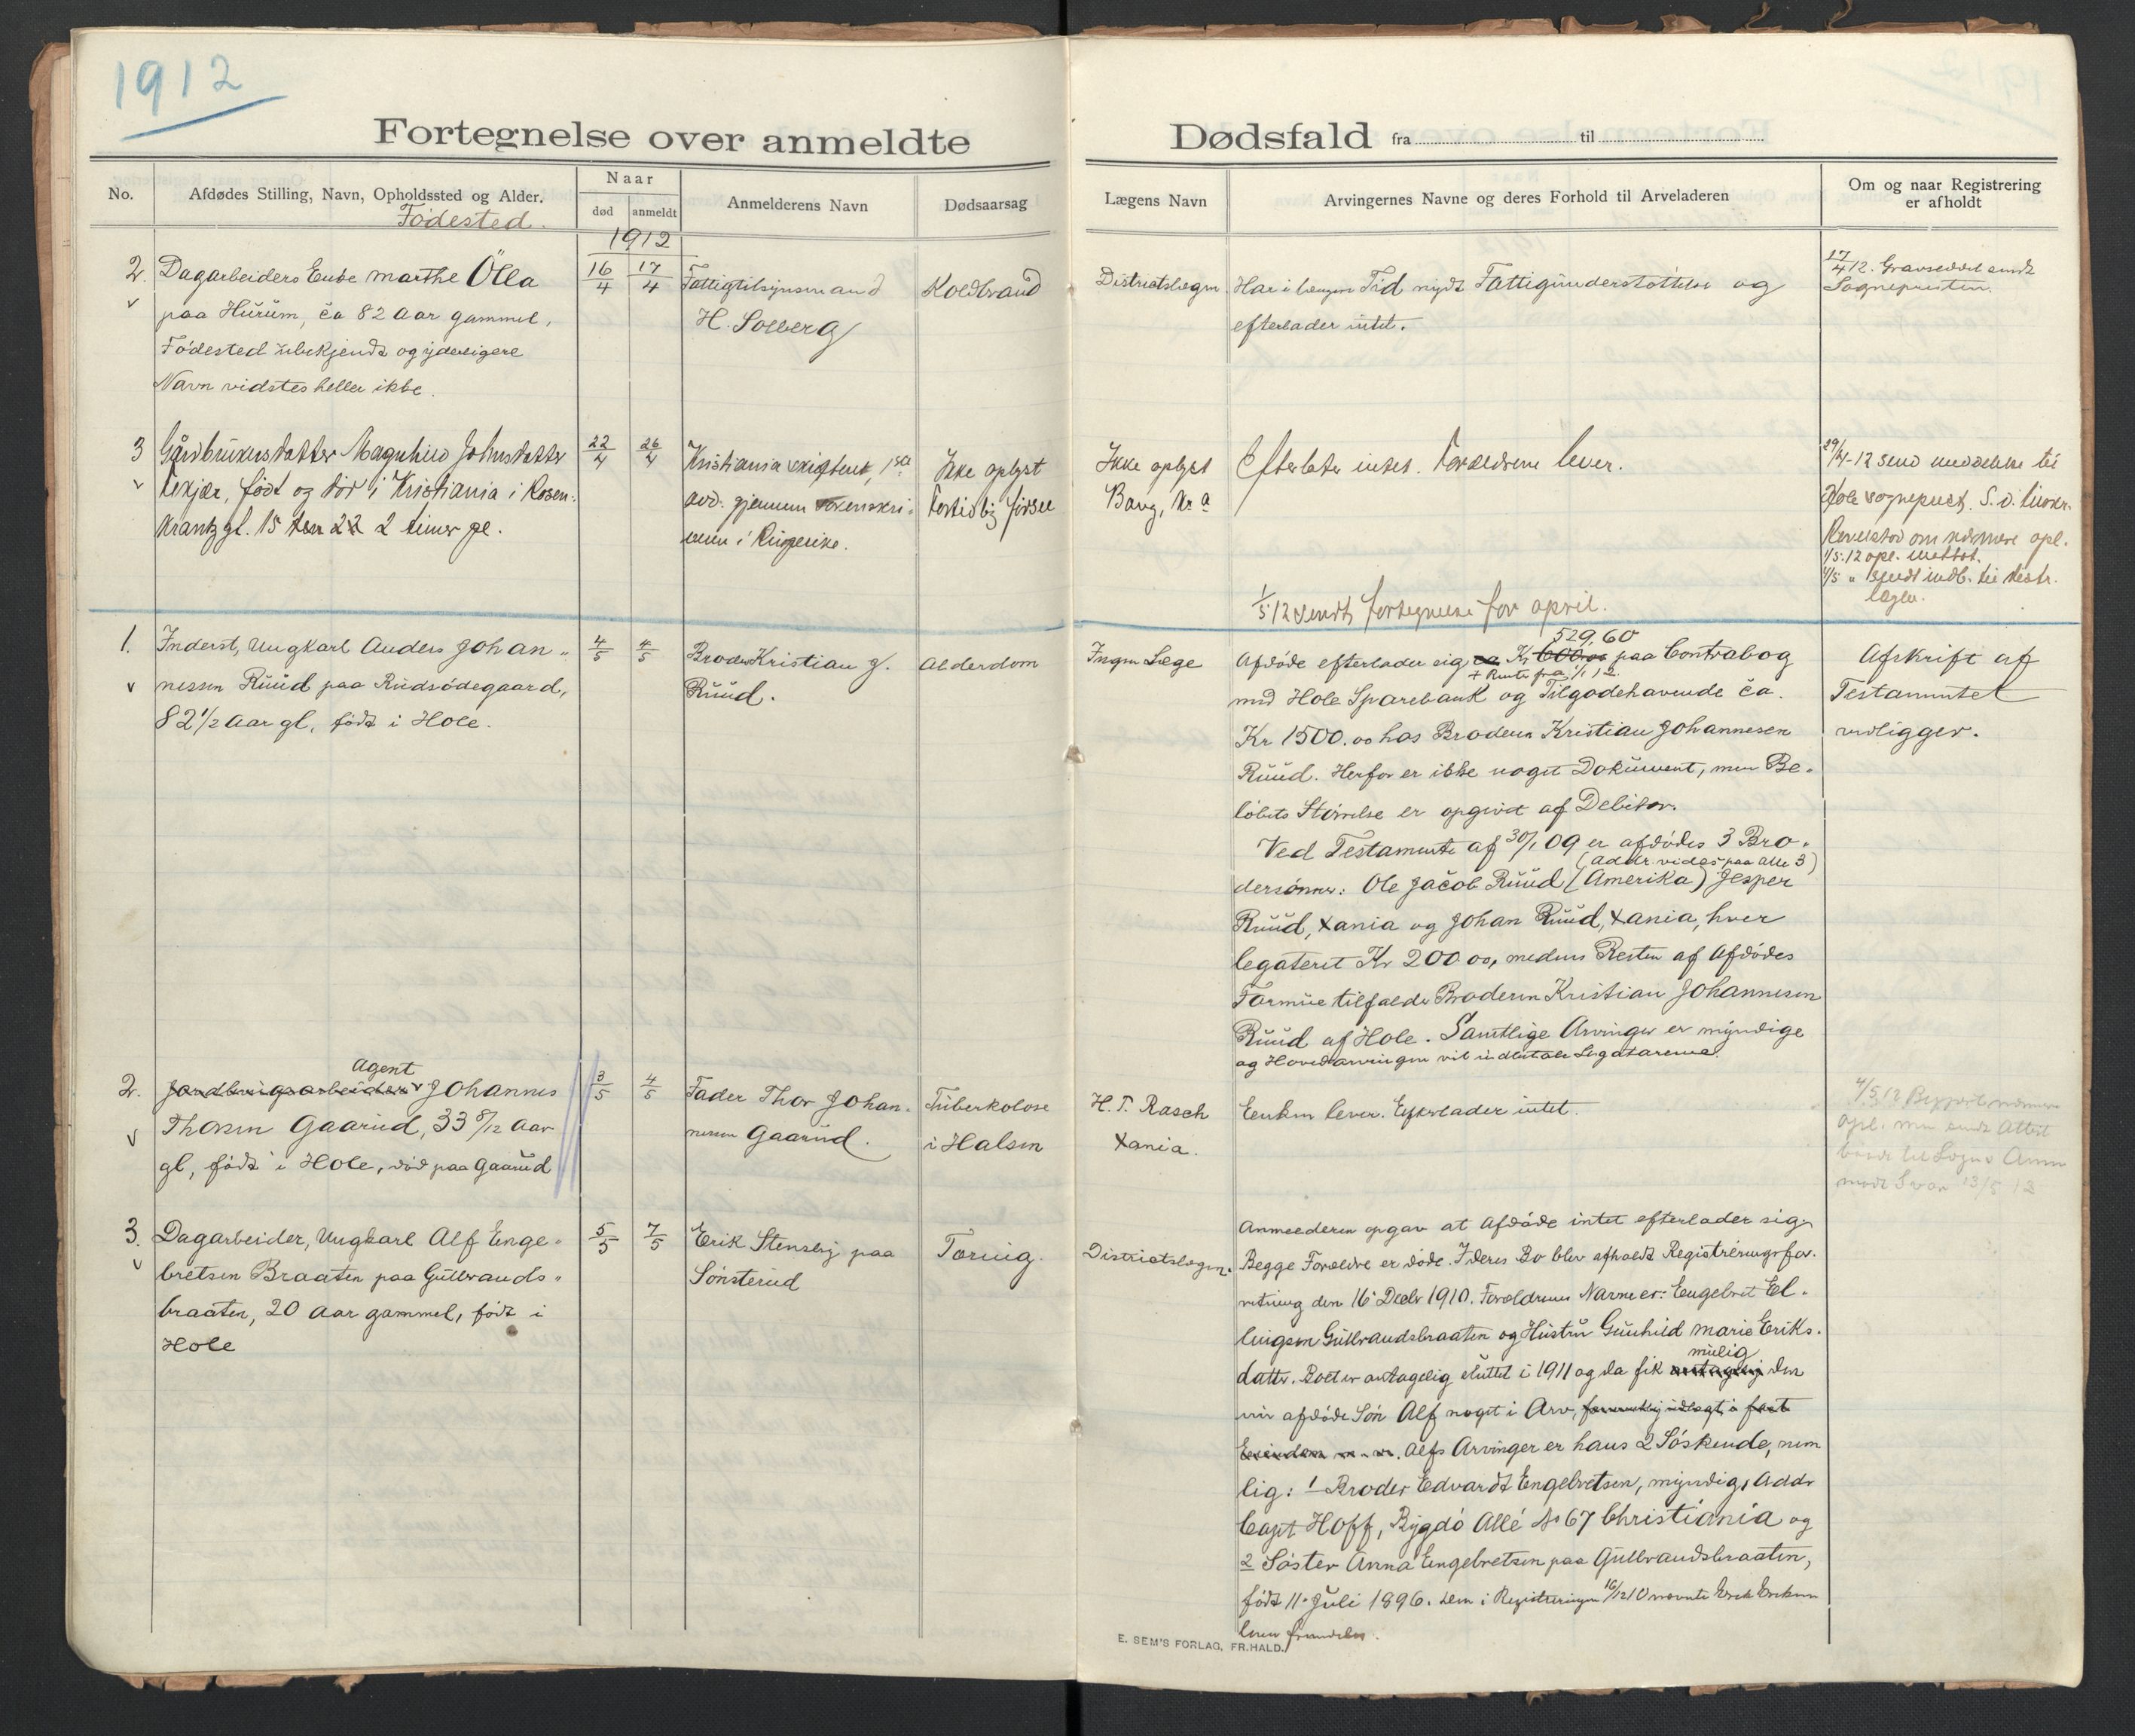 1912
Fortegnelse over anmeldte Dødsfald fra til
No.
Afdødes Stilling, Navn, Opholdssted og Alder.
Födested.
Naar
død
anmeldt
Anmelderens Navn
Dødsaarsag
Lægens Navn
Arvingernes Navne og deres Forhold til Arveladeren
Om og naar Registrering
er afholdt
1912
2.
Dagarbeiders Enke Marthe Ölla
paa Hurum, ca 82 Aar gammel,
Födested ubekjendt og yderligere
Navn vidstes heller ikke.
16/4
17/4
Fattigtilsynsmand
H. Solberg
Koldbrand
Districtslægen
Har i længere Tid nydt Fattigunderstøttelse og
efterlader intet.
17/4 12. Gravseddel sendt
Sognepresten.
3
Gårdbrukerdatter Magnhild Johnsdatter
født og død i Kristiania i Rosen-
krantzgt. 15 2 timer gl.
22/4
26/4
Kristiania skifteret, 1ste
avd. gjennem
i Ringerike.
Ikke oplyst
Ikke oplyst
Kr a
Efterlater intet. Forældrene lever.
29/4-12 send meddelelse til
Hole sogneprest.
om nærmere opl.
1/5.12 opl.
1/5 " sendt indb. til distr.
lægen.
1/5 12 sendt fortegnelse for april.
1.
Inderst, Ungkarl Anders Johan-
nessen Ruud paa Rudsödegaard,
82 1/2 Aar gl, født i Hole.
4/5
4/5
Broder Kristian J.
Ruud.
Alderdom
Ingen Læge
529,60
Afdøde efterlader sig ca Kr 600,00 paa Contrabog
+ Rente fra 1/1 12.
med Hole Sparebank og Tilgodehavende ca.
Kr 1500.00 hos Broderen Kristian Johannesen
Ruud. Herfor er ikke noget Dokument, men Be-
løbets Størrelse er opgivet af Debitor.
Ved Testamente af 30/1 09 er afdødes 3 Bro-
(addr. vides paa alle 3)
dersønner: Ole Jacob Ruud (Amerika) Jesper
Ruud, Xania og Johan Ruud, Xania, hver
legateret Kr 200.00, medens Resten af Afdødes
Formue tilfalder Broderen Kristian Johannesen
Ruud af Hole. Samtlige Arvinger er myndige
og Hovedarvingen vil udbetale Legatarerne.
Afskrift af
Testamentet
vedligger.
2.
Agent
Jordbrugsarbeider Johannes
Thoresen Gaarud, 33 8/12 Aar
gl, født i Hole, død paa Gaarud
3/5
4/5
Fader Thor Johan-
nessen Gaarud.
Tuberkolose
i Halsen
H. T. Rasch
Xania.
Enken lever. Efterlader intet.
4/5 12 nærmere
opl. men sendt Attest
13/5 12
3.
Dagarbeider, Ungkarl Alf Enge-
bretsen Braaten paa Gulbrands-
braaten, 20 Aar gammel, født i
Hole
5/5
7/5
Erik Stensby paa
Sønsterud
Tæring.
Districtslægen.
Anmelderen opgav at Afdøde intet efterlader sig.
Begge Forældre er døde. I deres Bo blev afholdt Registreringsfor-
retning den 16 Decbr 1910. Forældrenes Navne er: Engebret El-
lingsen Gulbrandsbraaten og Hustru Gunhild Marie Eriks-
mulig
datter. Boet er antagelig sluttet i 1911 og da fik antagelig den
nu afdøde Søn Alf noget i Arv, udlagt i fast
Eiendom m. m. Alfs Arvinger er hans 2 Söskende, nem
lig: 1 Broder Edvardt Engebretsen, myndig, Addr
Capt Hoff, Bygdö Allé No 67 Christiania og
2 Søster Anna Engebretsen paa Gulbrandsbraaten,
født 11. Juli 1896. Den i Registreringen 16/12 10 nævnte Erik Eriksen
E. SEM'S FORLAG, FR.HALD.